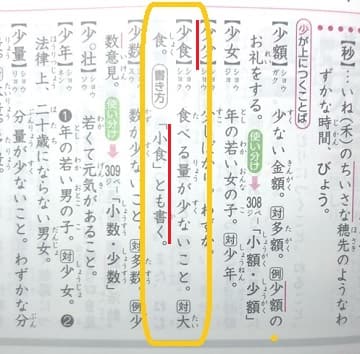 【秒】…いね（禾）のちいさな穂先のようなわ
ずかな時間。びょう。
少が上につくことば
【少額】ショウガク 少ない金額。対多額。例少額の
お礼をする。使い分け→308ページ「小額・少額」
【少女】ショウジョ 年の若い女の子。対少年。
【少食】ショウショク 食べる量が少ないこと。対大
食。書き方「小食」とも書く。
【少数】ショウスウ 数が少ないこと。対多数。例少
数意見。使い分け→309ページ「小数・少数」
【少壮】ショウソウ 若くて元気があること。
【少年】ショウネン ❶年の若い男の子。対少女。❷
法律上、二十歳にならない男女。
【少量】ショウリョウ 分量が少ないこと。わずかな分